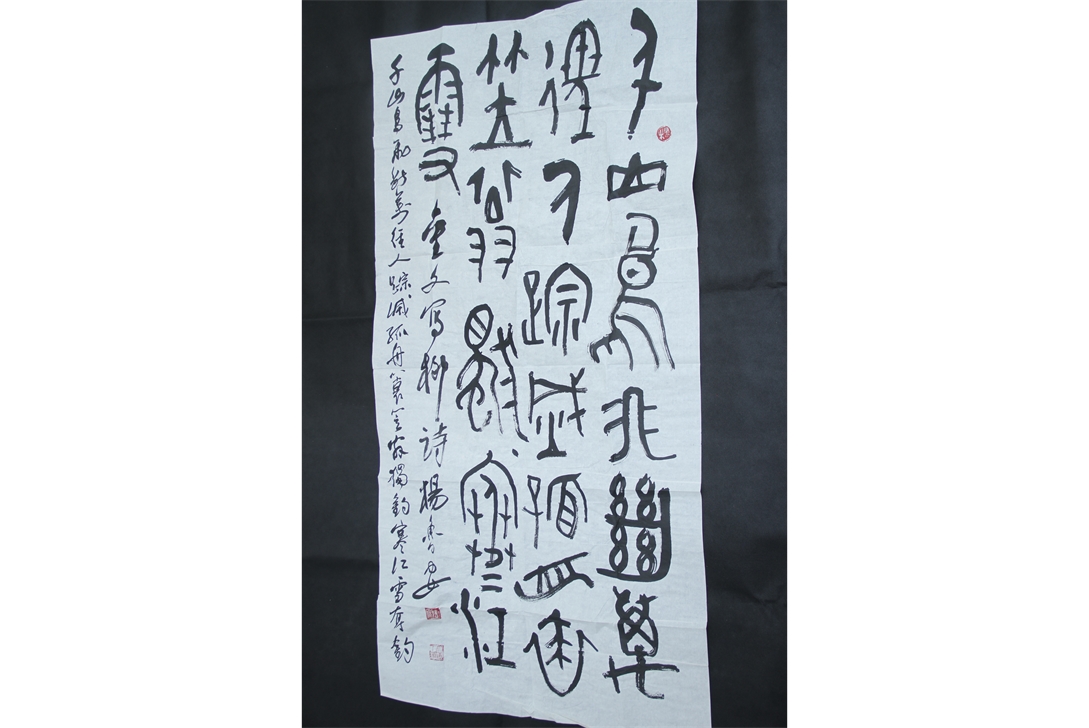 千山鳥飛絕萬
徑人踪滅孤舟蓑
笠翁獨寒江
雪 金文写柳詩 楊魯安
千山鳥飛絕萬徑人踪滅孤舟蓑笠翁獨釣寒江雪奪釣